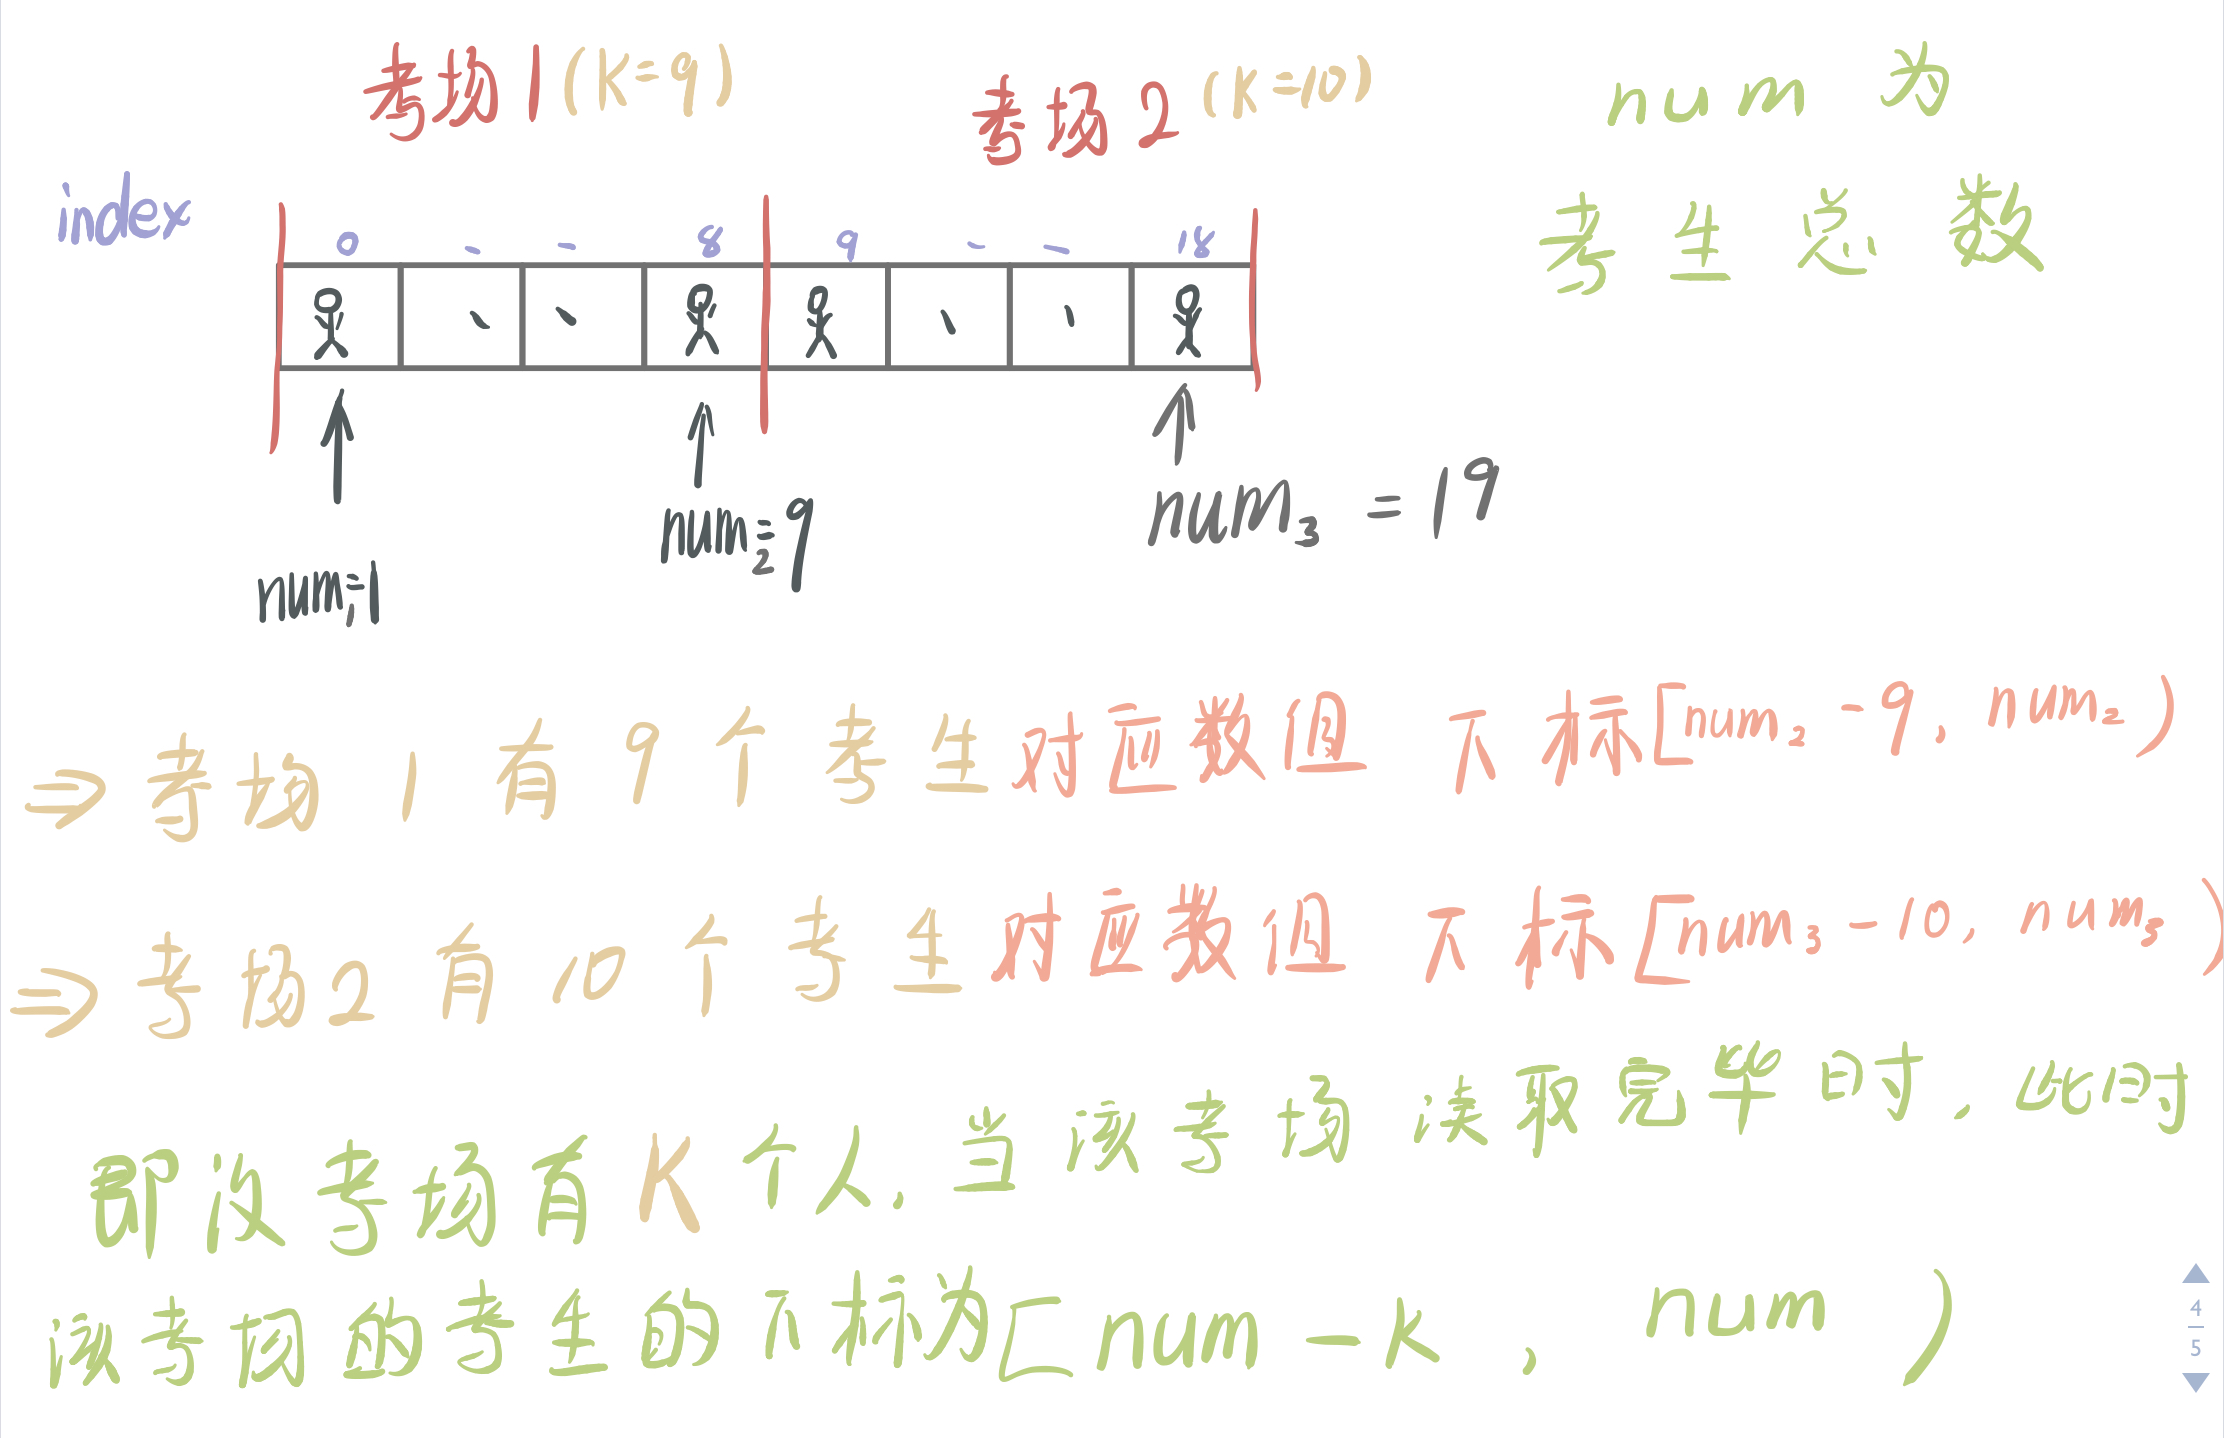 考场1(K=9)
考场2(K=10)
num 为
考生总数
index
0 - - 8 9 - - 18
num₁=1
num₂=9
num₃=19
⇒考场1有9个考生对应数组下标[num₂-9, num₂)
⇒考场2有10个考生对应数组下标[num₃-10, num₃)
即设考场有K个人,当该考场读取完毕时,此时
该考场的考生的下标为[num-k, num)
4
5